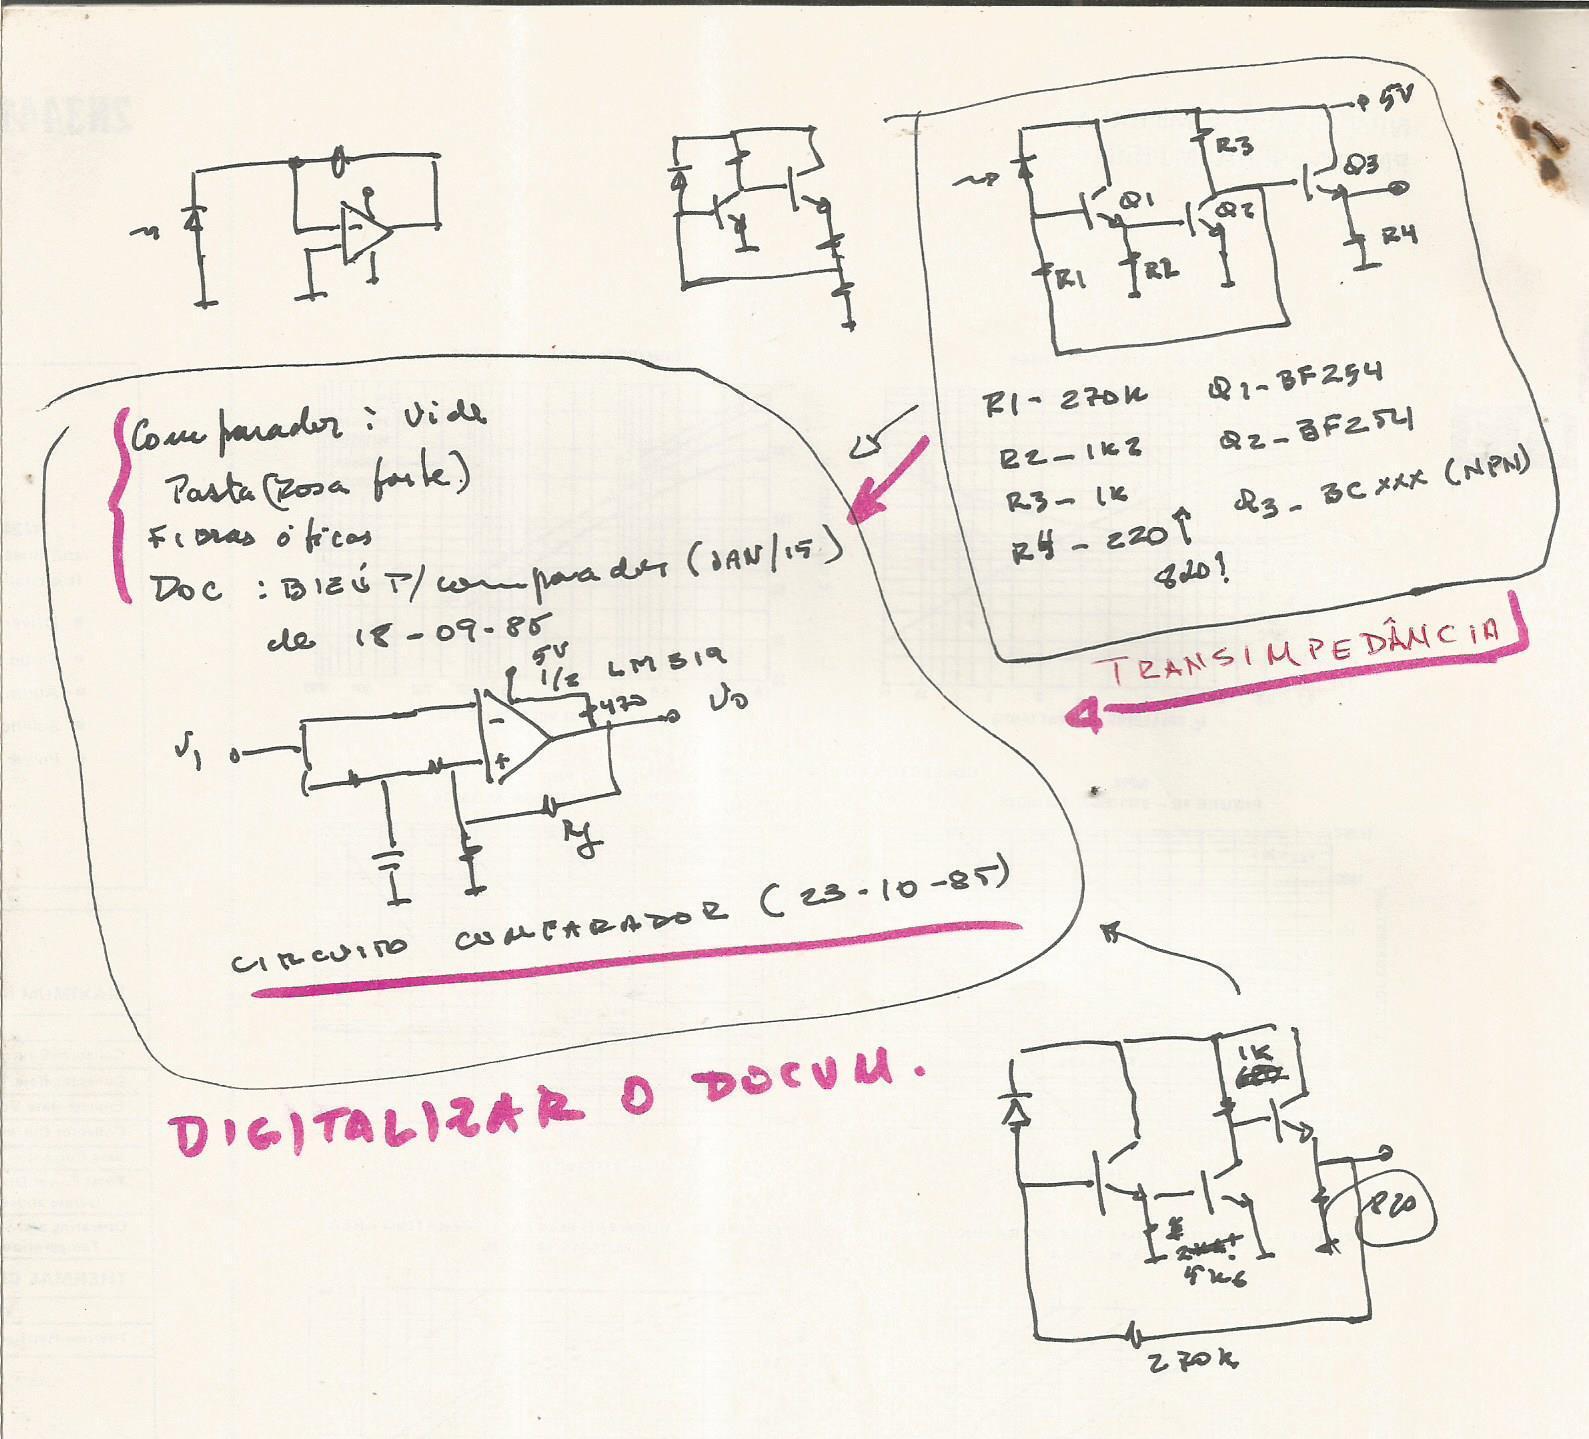 5V
R3
Q3
Q1
Q2
R4
R1
R2
R1- 270K Q1-BF254
R2-1K2 Q2-BF254
R3- 1K Q3- BC xxx (NPN)
R4 - 220↑
820!
TRANSIMPEDÂNCIA
Comparador : vide
Pasta (Rosa forte)
Fibras óticas
DOC : BIZÚ P/ comparador (JAN/15)
de 18-09-85
5V
1/2 LM319
470
Vi
Vo
-
+
Rf
CIRCUITO COMPARADOR (23-10-85)
DIGITALIZAR O DOCUM.
1K
820
270K